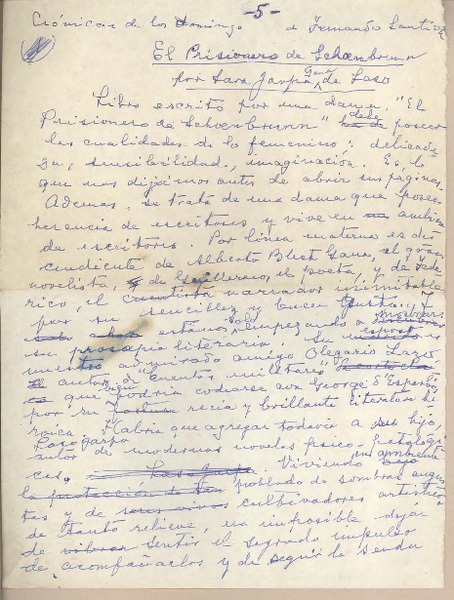 Crónicas de los Domingo -5- de Fernando Santiván
El Prisionero de Schoenbrunn
por Sara Jarpa Gana de Laso
Libro escrito por una dama, "El
Prisionero de Schoenbrunn" debe poseer
las cualidades de lo femenino: delicade
za, sensibilidad, imaginación. Es lo
que nos dijimos antes de abrir sus páginas.
Ademas, se trata de una dama que posee
herencia de escritores y vive en ambiente
de escritores. Por línea materna es des
cendiente de Alberto Blest Gana, el gran
novelista, de Guillermo, el poeta, y de Fede
rico, el narrador inimitable
por su sencillez y buen gusto. Y
estamos solo empezando a mencionar
su prosapia literaria. Su esposo es
nuestro admirado amigo Olegario Lazo,
autor de "Cuentos militares"
que bien podría codearse con George d'Esparbés
por su recia y brillante literatura he
roica. Habria que agregar todavía a su hijo,
Lasojarpa
autor de modernas novelas físico-patologi
cas. Viviendo en ambiente
poblado de sombras augus
tas y de cultivadores artísticos
de tanto relieve, es imposible dejar
de sentir el sagrado impulso
de acompañarlos y de seguir la senda